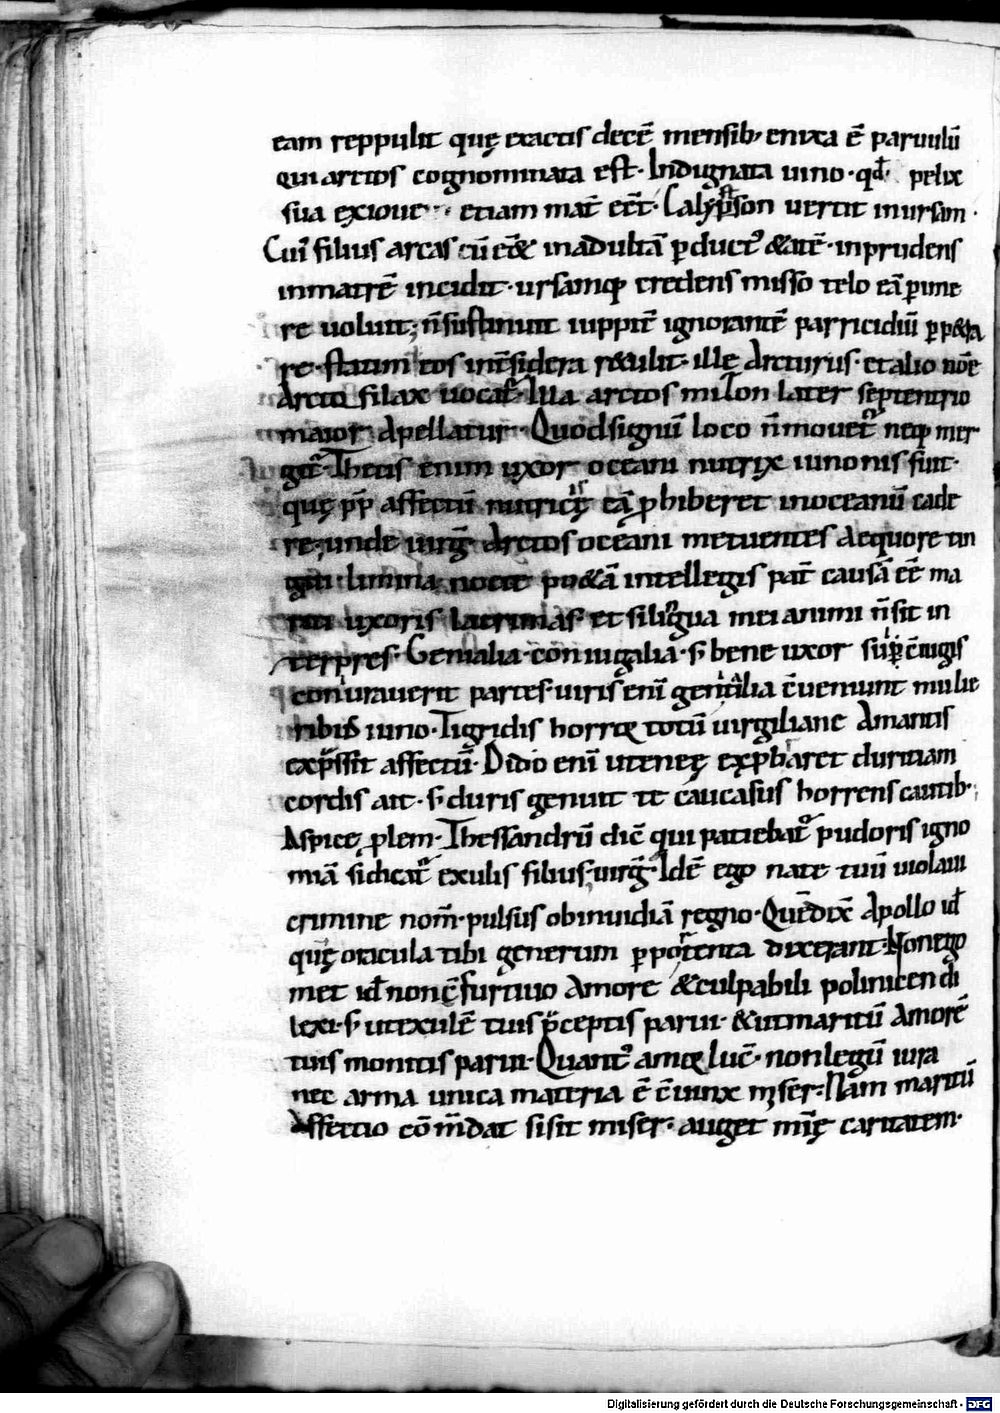 eam reppulit quę exactis decē mensib; enixa ē paruulū
qui arctos cognominata est. Indignata iuno. qđ. pelix
sua exioue etiam mat̄ eēt. Calypston uertit in ursam.
Cui' filius arcas cū eēt & in adultā ꝑduct' & atē. inprudens
in matrē incidit. ursamq; credens misso telo eā ꝑime
re uoluit; n̄ sustinuit iuppit̄ ignorantē parricidiū ꝑpeta
re. statim eos int̄ sidera retulit. ille Arcturus. et alio noīe
Arctu filax uocat̄. Illa arctos mixon later septentrio
maior apellatur. Quod signū loco n̄ mouet̄ neq; mer
git̄. Thetis enim uxor oceani nutrix iunonis fuit.
quę pp̄ affectū nutricis eā ꝓhiberet in oceanū cade
re; unde uirḡ Arctos oceani metuentes Aequore tin
gui. lumina nocte intellegis pat̄ causā eē ma
riti uxoris lacrimas. et si lingua mei animi n̄ sit in
terpres. Genialia. coniugalia. s; bene uxor sup̄ cūiugis
coniurauerit partes. uiris enī genitalia cūeniunt mulie
ribus iuno. Tigridis horrę totū uirgiliane Amantis
exp̄ssit affectū. Dido enī ut eneę exꝓbaret duritiam
cordis ait. s; duris genuit te caucasus horrens cautib;
Aspice ꝓlem. Thessandrū dic̄ qui patiebat̄ pudoris igno
miā si dicat̄ exulis filius; uirḡ. Idē ego nate tuū uiolaui
crimine nom̄. pulsus ob inuidiā regno. Quē dix̄ Apollo id
quę oracula tibi generum ꝑ portenta dixerant. Non ego
met id non ē furtiuo Amore & culpabili polinicen di
lexi. s; ut exulē tuis p̄ceptis parui. & ut maritū Amorē
tuis monitis parui. Quant' amę luc̄. non legū iura
nec arma unica materia ē cūiunx miser. Nam maritū
Affectio cōm̄dat si sit miser. auget mīę caritatem.
Digitalisierung gefördert durch die Deutsche Forschungsgemeinschaft - DFG